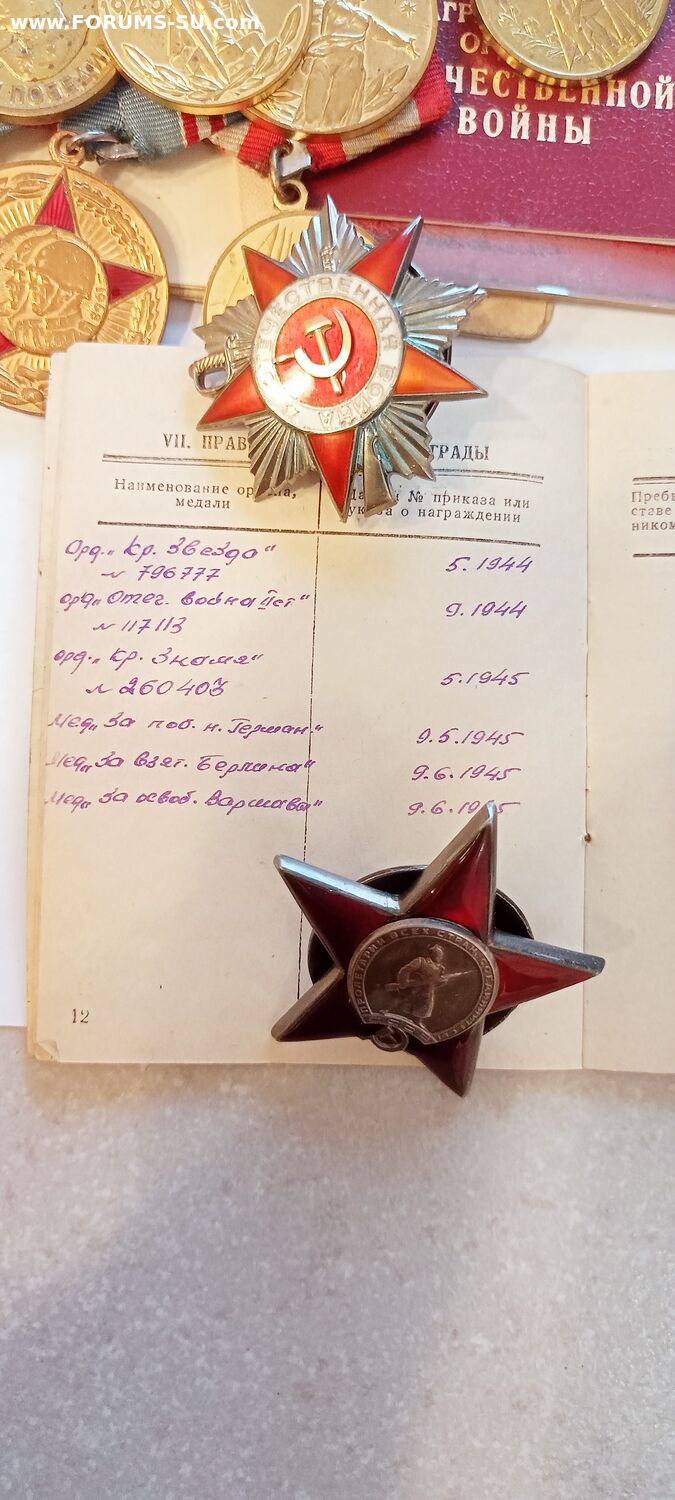 www.FORUMS-SU.com
ЧЕСТВЕННОЙ
ВОЙНЫ
ОТЕЧЕСТВЕННАЯ ВОЙНА
VII. ПРАВ
ГРАДЫ
Наименование
медали
№ приказа или
о награждении
Пребы
ставе
ником
Орд. „Кр. Звезда"
№ 796777
5.1944
орд „Отеч. война II ст"
№ 117113
9.1944
орд. „Кр. Знамя"
№ 260403
5.1945
Мед „За поб. н. Герман."
9.5.1945
Мед „За взят. Берлина"
9.6.1945
Мед „За освоб. Варшавы"
9.6.1945
ПРОЛЕТАРИИ ВСЕХ СТРАН
12